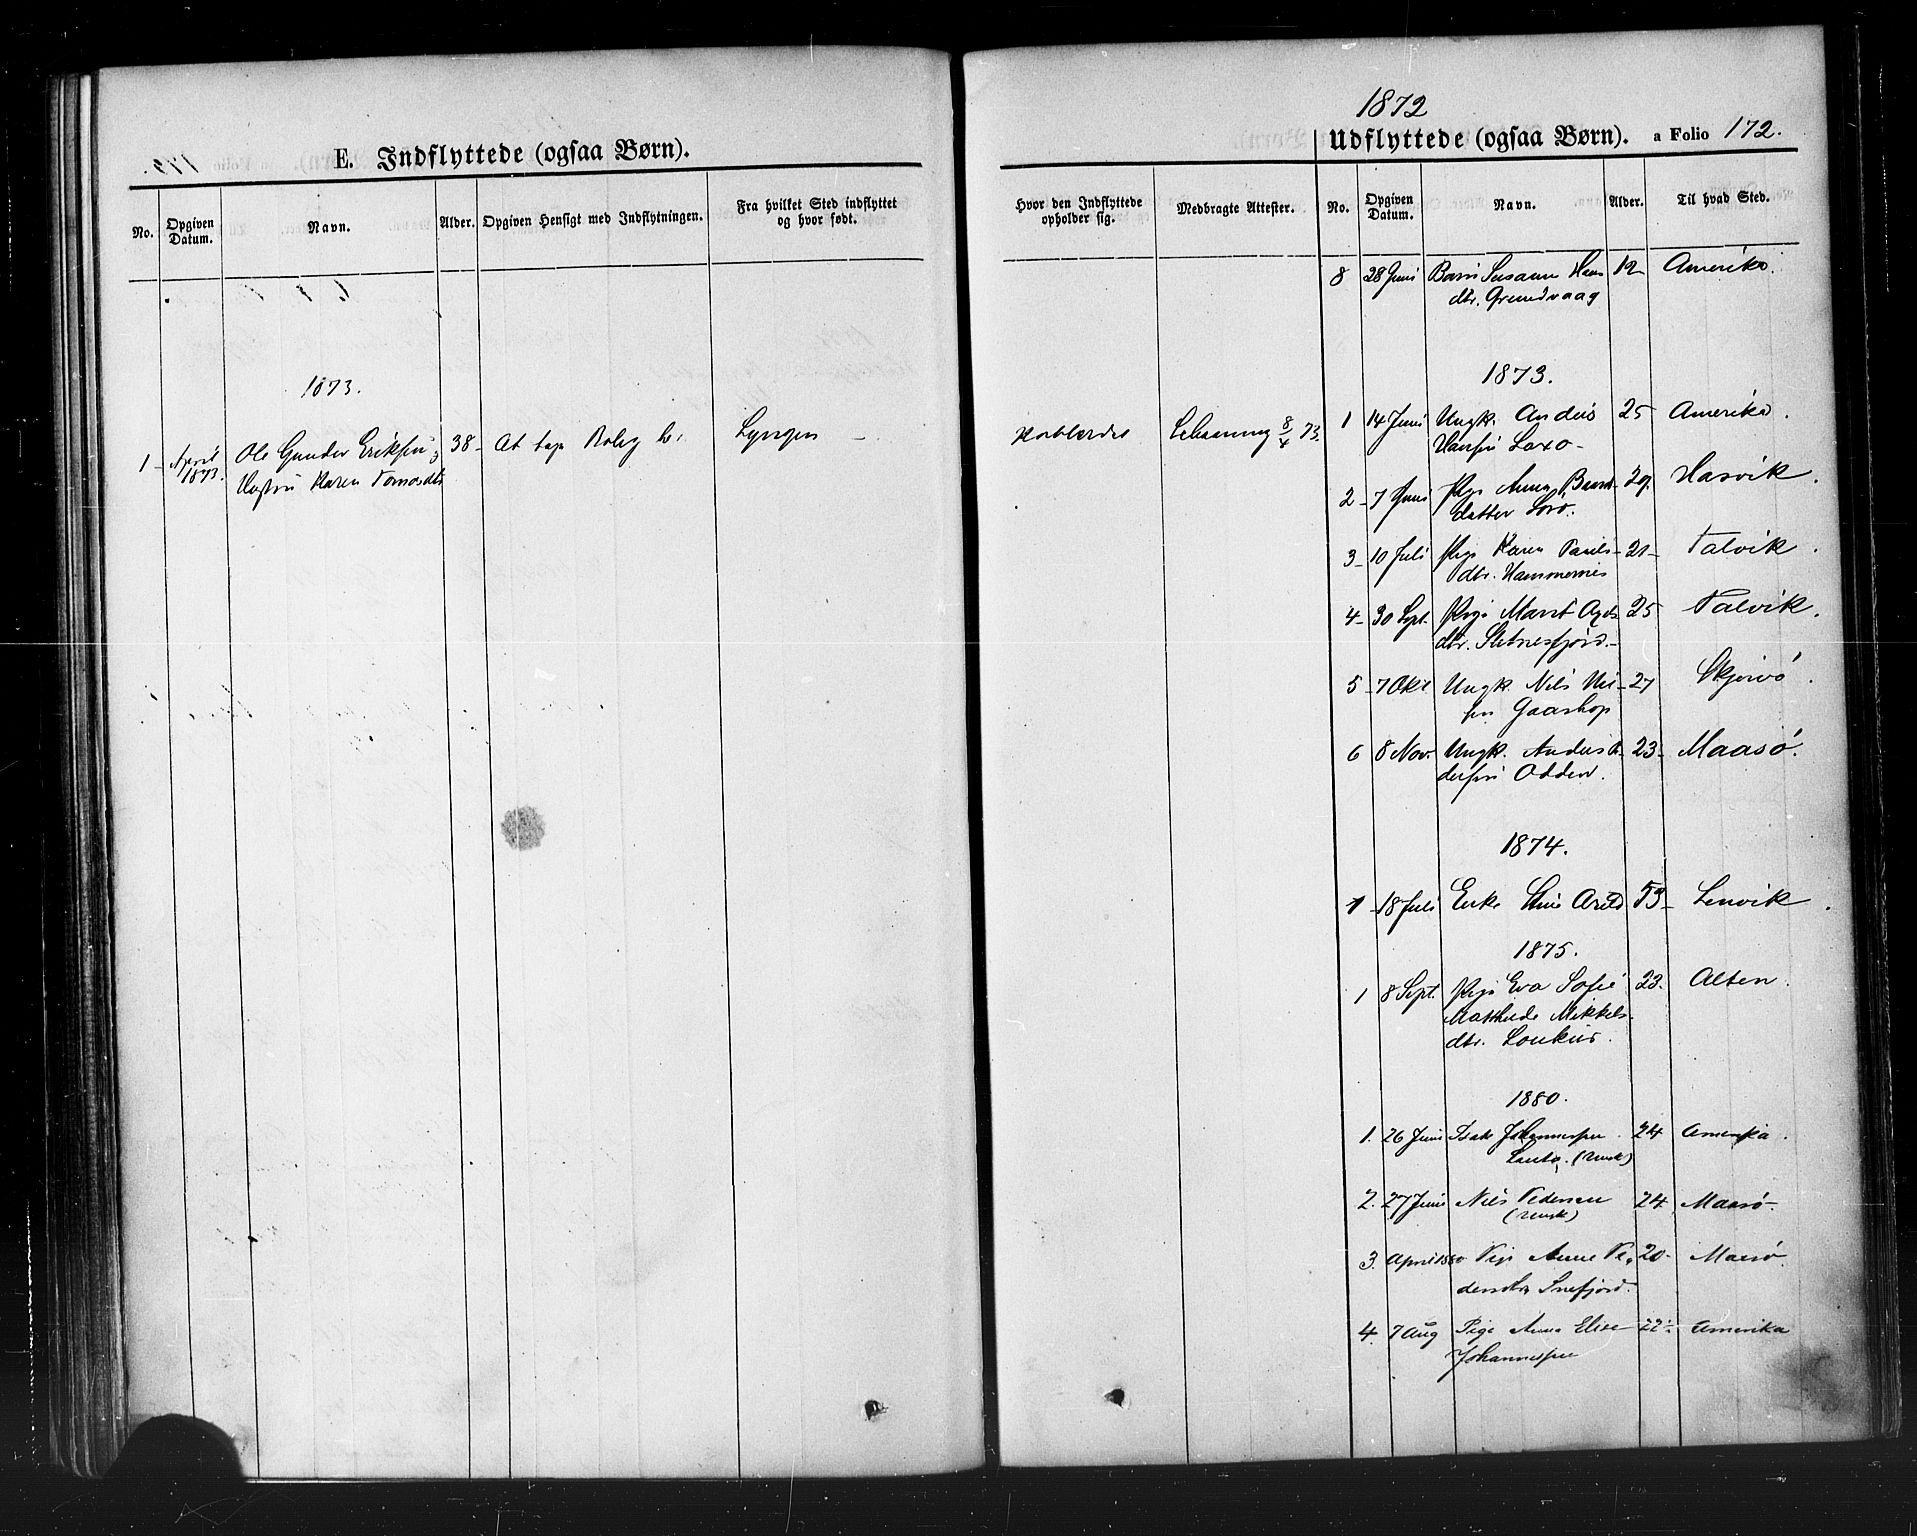 E. Indflyttede (ogsaa Børn).
No. Opgiven Datum. Navn. Alder. Opgiven Hensigt med Indflytningen. Fra hvilket Sted indflyttet og hvor født.
1873.
1 April 1873. Ole Gunder Eriksen 38 At tage Bolig her Lyngen
Hustru Karen
1872
Udflyttede (ogsaa Børn). a Folio 172.
Hvor den Indflyttede opholder sig. Medbragte Attester. No. Opgiven Datum. Navn. Alder. Til hvad Sted.
8 28 Juni Barn Susanne Hans 12 Amerika.
dtr. Grundvaag
1873.
8/4 73. 1 14 Juni Ungk. Anders 25 Amerika.
Hansen
2 7 Juni Pige Anna 29. Hasvik.
datter
3 10 Juli Pige Karen Pauls 21 Talvik.
dtr. Hammernes
4 30 Sept. Pige Marit 25 Talvik.
dtr. Sletnesfjord.
5 7 Okt Ungk. Nils Nil 27 Skjervö.
sen Gaashop
6 8 Nov. Ungk. Anders 23 Maasö.
Odden.
1874.
1 18 Juli Enke 53 Lenvik.
1875.
1 8 Sept. Pige Eva Sofie 23. Alten.
Mathilde Mikkels
dtr. Loukus.
1880.
1. 26 Juni Isak Johannessen 24 Amerika.
2. 27 Juni Nils Pedersen 24 Maasö
3. April 1880 Pige Anne Pe 20 Maasö
dersdtr Snefjord.
4 7 Aug Pige Anna Elise 22 Amerika
Johannessen